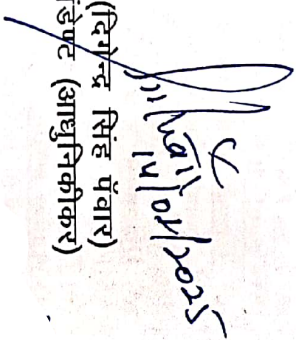 14/01/2025
(दिगेन्द्र सिंह पँवार)
डेण्ट (आधुनिकीकर)